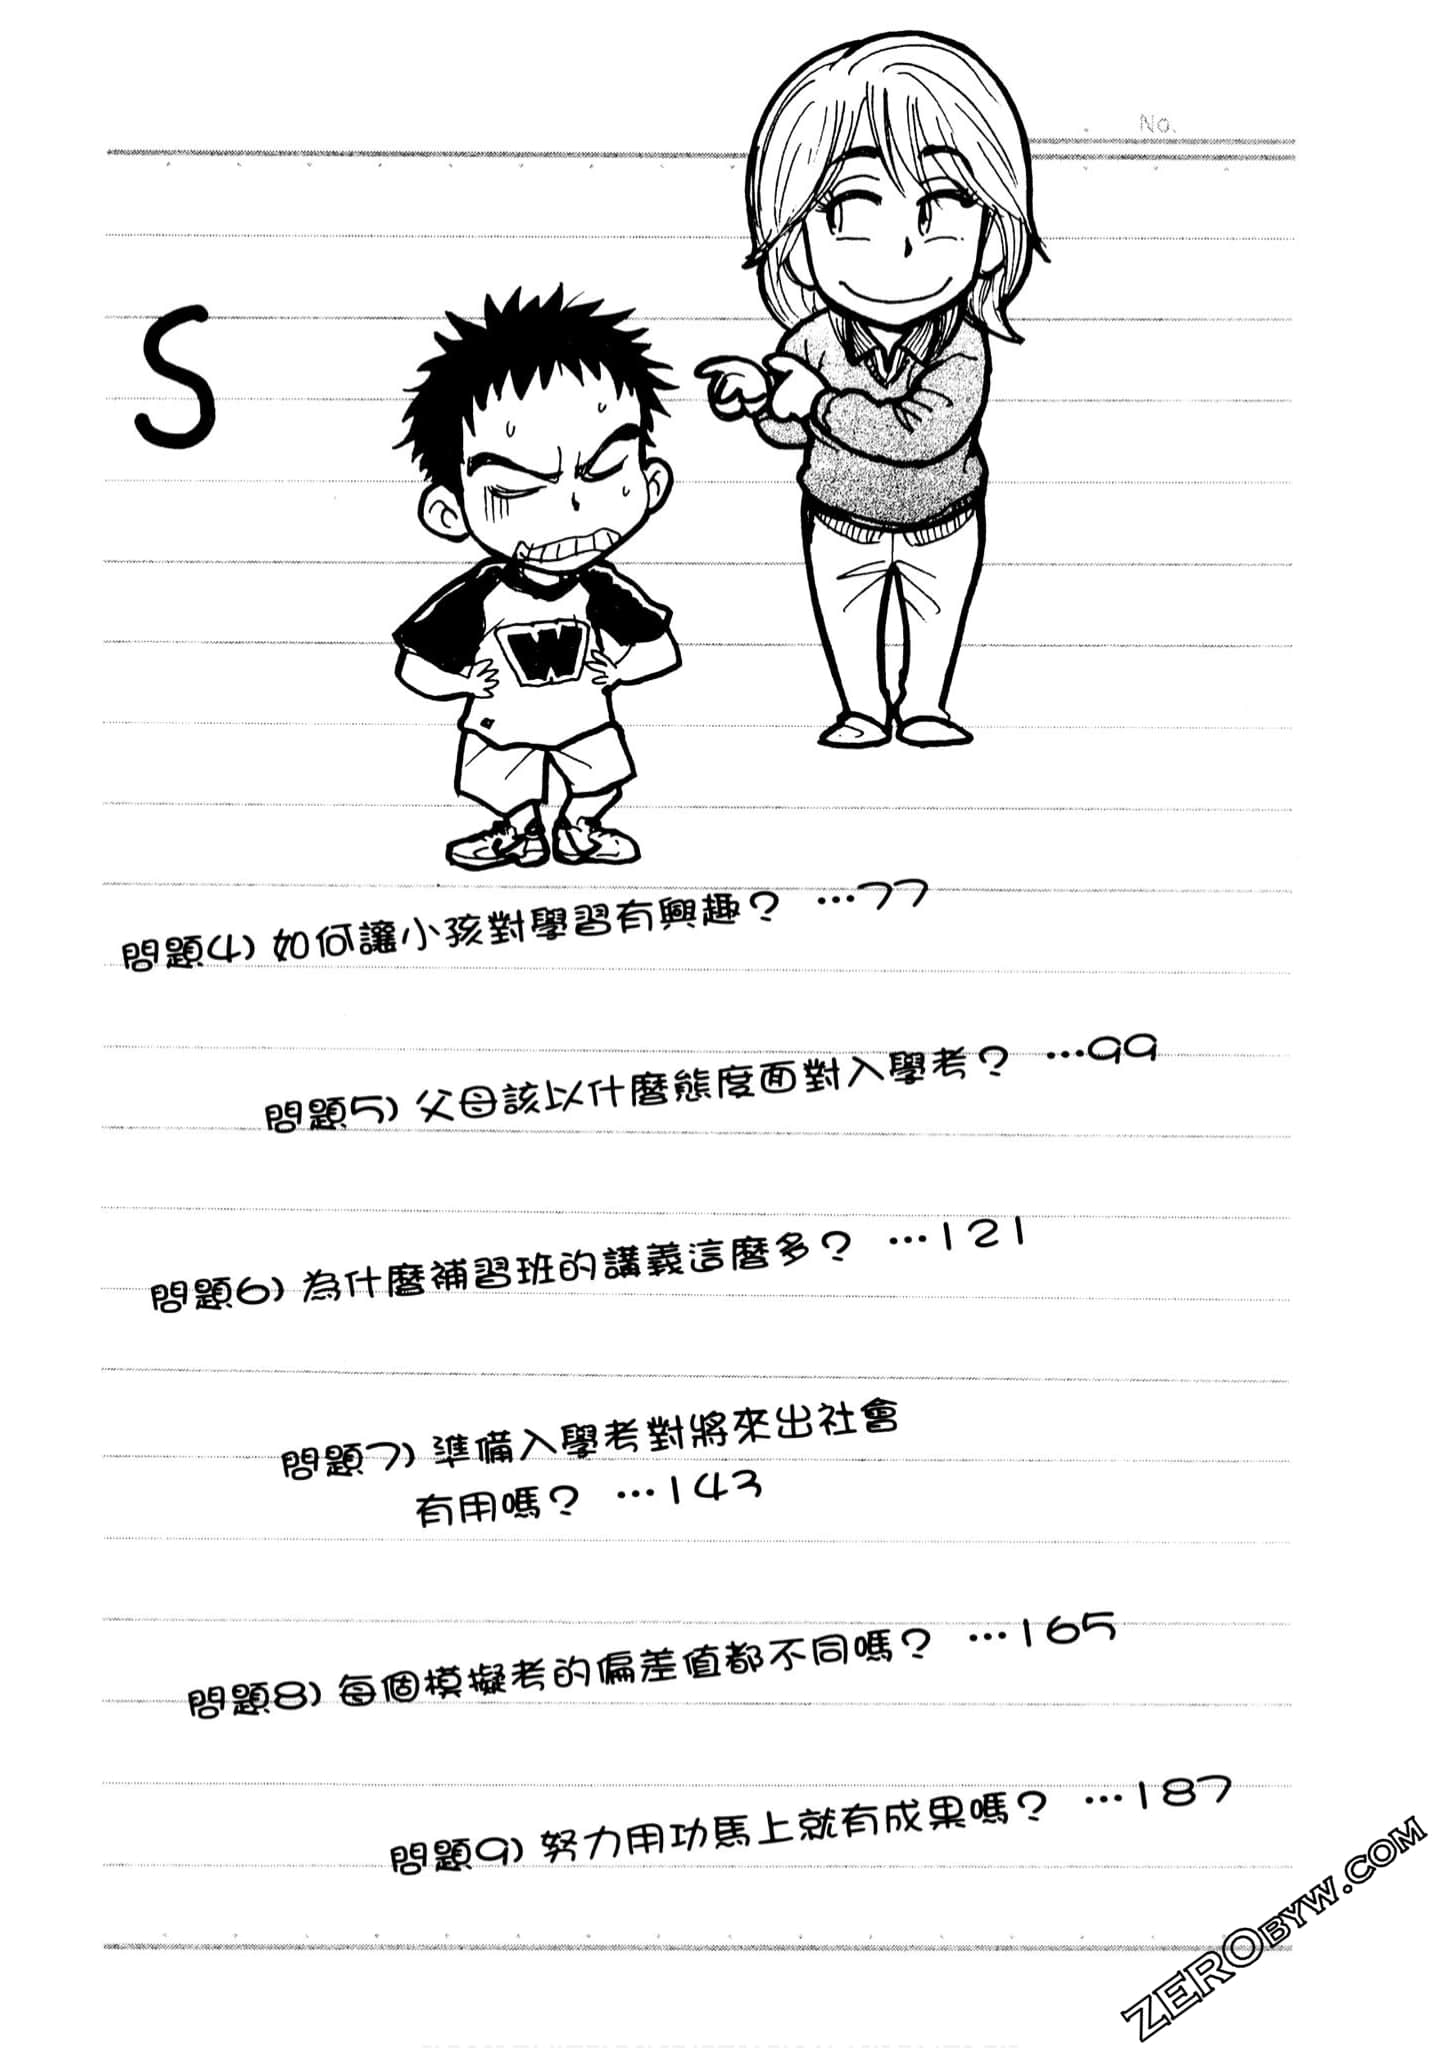 No.
S
W
問題4) 如何讓小孩對學習有興趣？ …77
問題5) 父母該以什麼態度面對入學考？ …99
問題6) 為什麼補習班的講義這麼多？ …121
問題7) 準備入學考對將來出社會
有用嗎？ …143
問題8) 每個模擬考的偏差值都不同嗎？ …165
問題9) 努力用功馬上就有成果嗎？ …187
ZEROBYW.COM